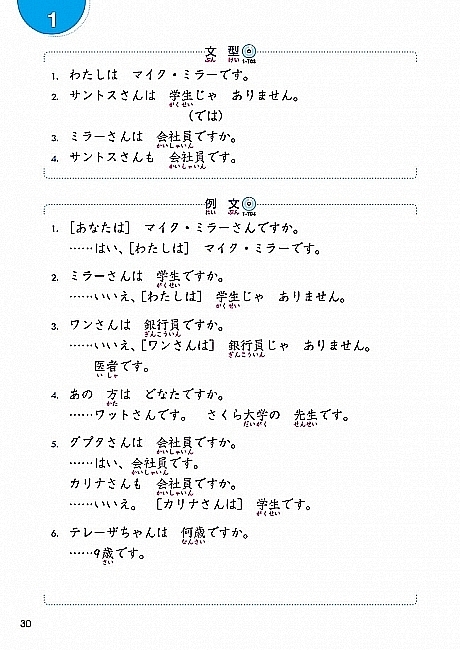 1
文型
ぶん けい
1-T03
1. わたしは マイク・ミラーです。
2. サントスさんは 学生じゃ ありません。
がくせい
(では)
3. ミラーさんは 会社員ですか。
かいしゃいん
4. サントスさんも 会社員です。
かいしゃいん
例文
れい ぶん
1-T04
1. [あなたは] マイク・ミラーさんですか。
……はい、[わたしは] マイク・ミラーです。
2. ミラーさんは 学生ですか。
がくせい
……いいえ、[わたしは] 学生じゃ ありません。
がくせい
3. ワンさんは 銀行員ですか。
ぎんこういん
……いいえ、[ワンさんは] 銀行員じゃ ありません。
ぎんこういん
医者です。
いしゃ
4. あの 方は どなたですか。
かた
……ワットさんです。 さくら大学の 先生です。
だいがく せんせい
5. グプタさんは 会社員ですか。
かいしゃいん
……はい、会社員です。
かいしゃいん
カリナさんも 会社員ですか。
かいしゃいん
……いいえ。 [カリナさんは] 学生です。
がくせい
6. テレーザちゃんは 何歳ですか。
なんさい
……9歳です。
さい
30